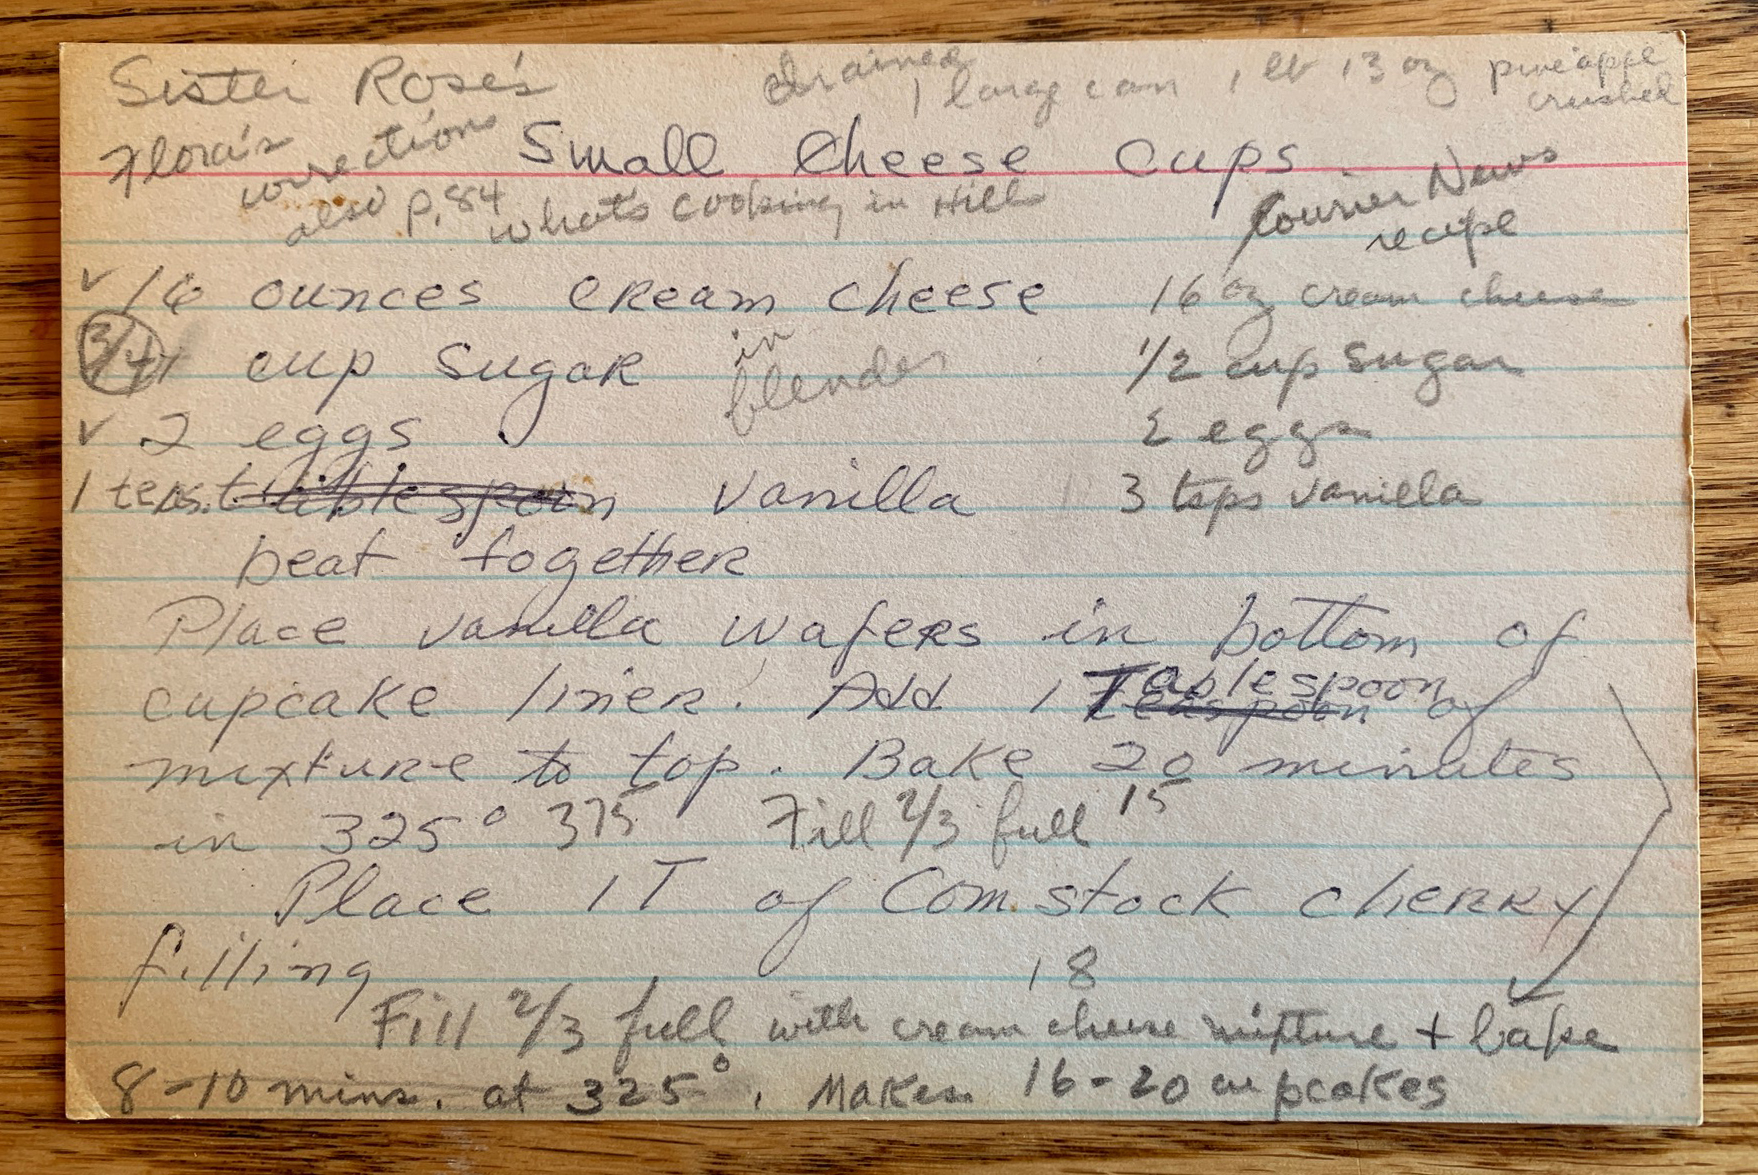 Sister Rose's
drained
1 large can 1 lb 13 oz pineapple
crushed
Flora's corrections
Small Cheese Cups
also p.84 what's cooking in Hills
Courier News
recipe
✓ 16 ounces cream cheese
16 oz cream cheese
3/4 1 cup sugar
in
blender
1/2 cup sugar
✓ 2 eggs
2 eggs
1 teas. tablespoon vanilla
3 tsps vanilla
beat together
Place vanilla wafers in bottom of
cupcake liner. Add 1 Teaspoon Tablespoon of
mixture to top. Bake 20 minutes
in 325° 375 Fill 2/3 full 15
Place 1 T of Comstock cherry
filling
18
Fill 2/3 full with cream cheese mixture + bake
8-10 mins. at 325°. Makes 16-20 cupcakes